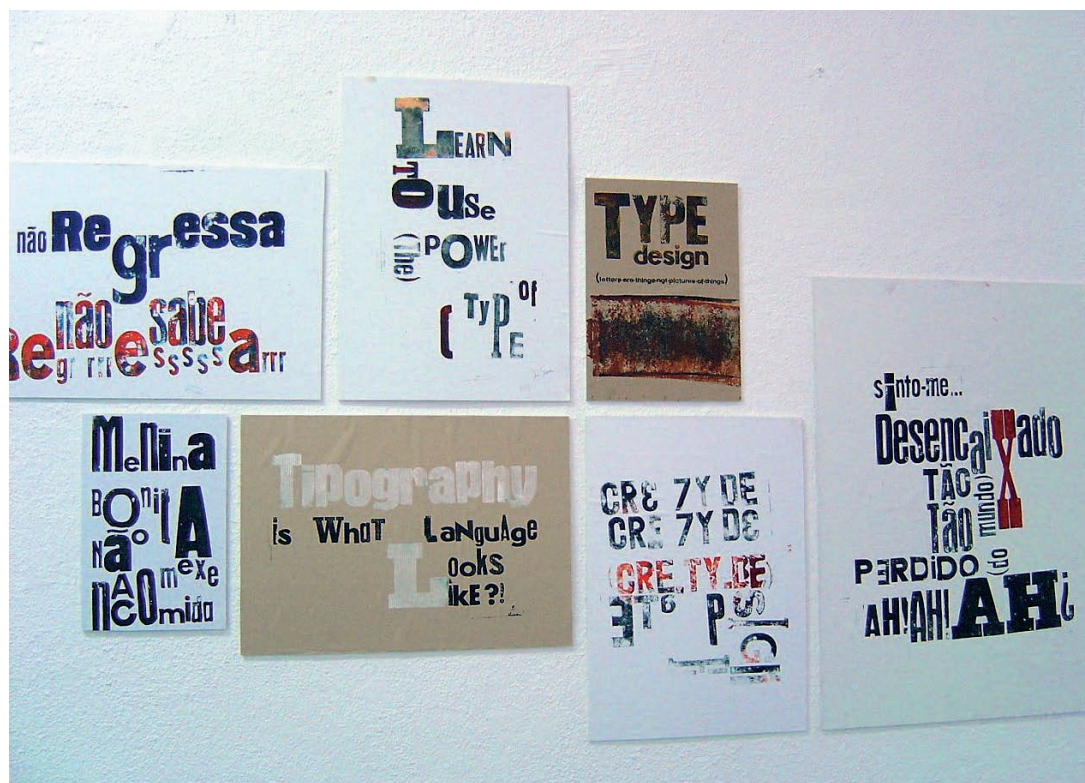 não Regressa
não sabe
Regrrrressssssarrr
LEARN
TO USe
(The) POWEr
of
(TYPE
TYPE
design
(letters-are-things-not-pictures-of-things)
MeNina
BOnitA
Não
mexe
nA COmida
Tipography
is WhaT LaNguAge
LooKS
LikE?!
CRE 7Y DE
CRE 7Y DE
(CRE.TY.DE)
sinto-me...
Desencaixado
TÃO
Tão
PERDIDO (do mundo)
AH!AH!AH¡